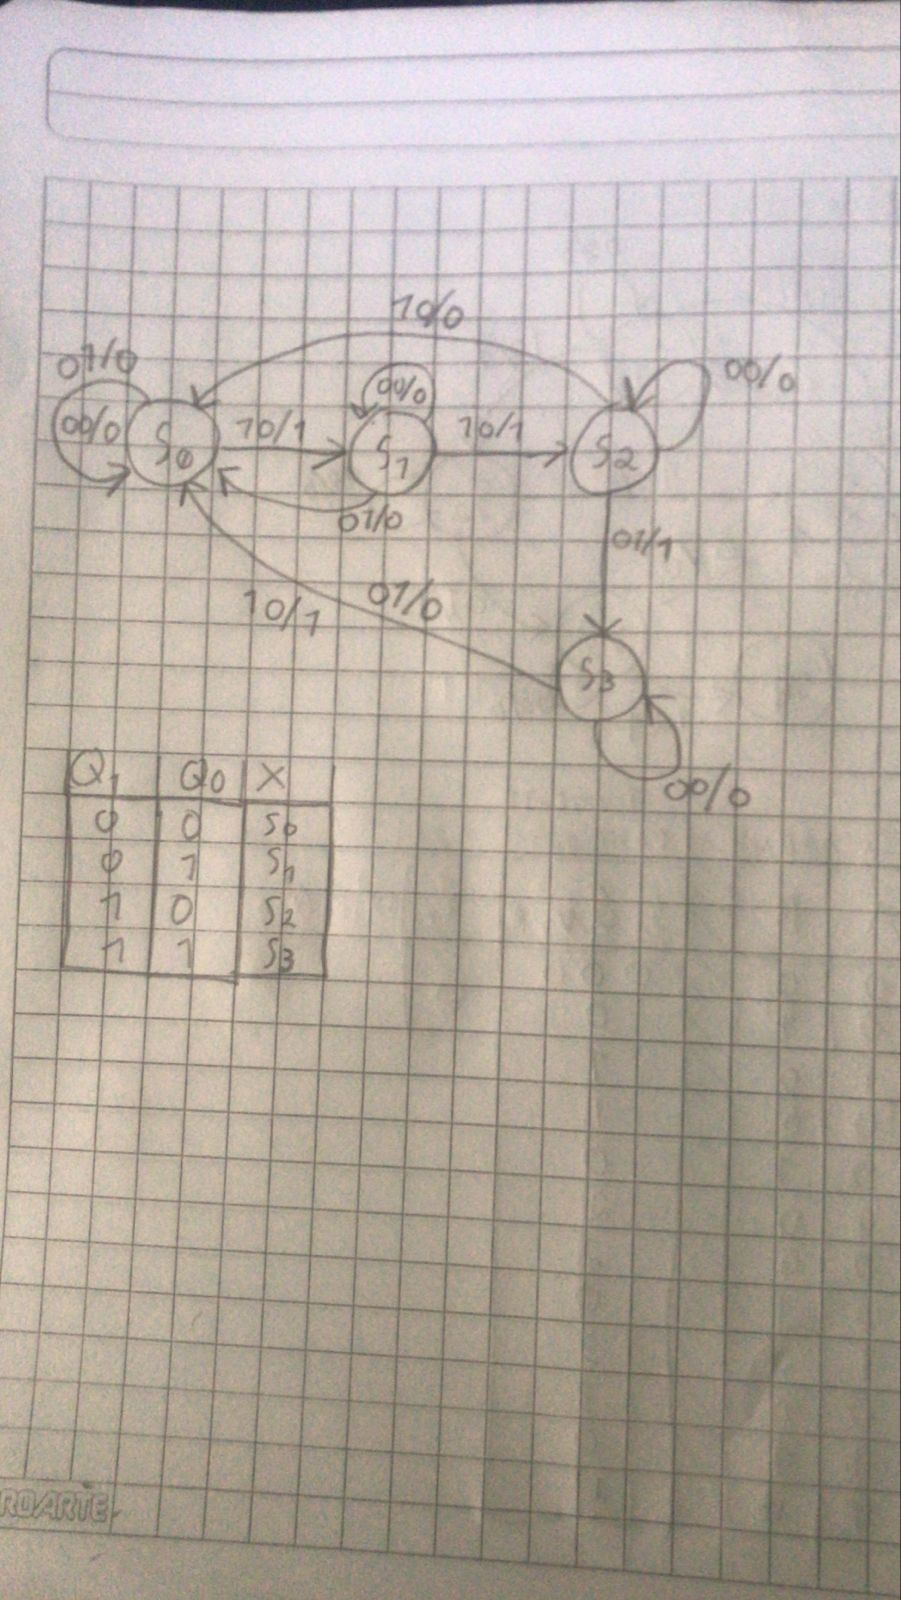 10/0
01/0
00/0
00/0
00/0
S0
10/1
S1
10/1
S2
01/0
01/1
10/1
01/0
S3
00/0
Q1 Q0 X
0 0 S0
0 1 S1
1 0 S2
1 1 S3
ROARTE